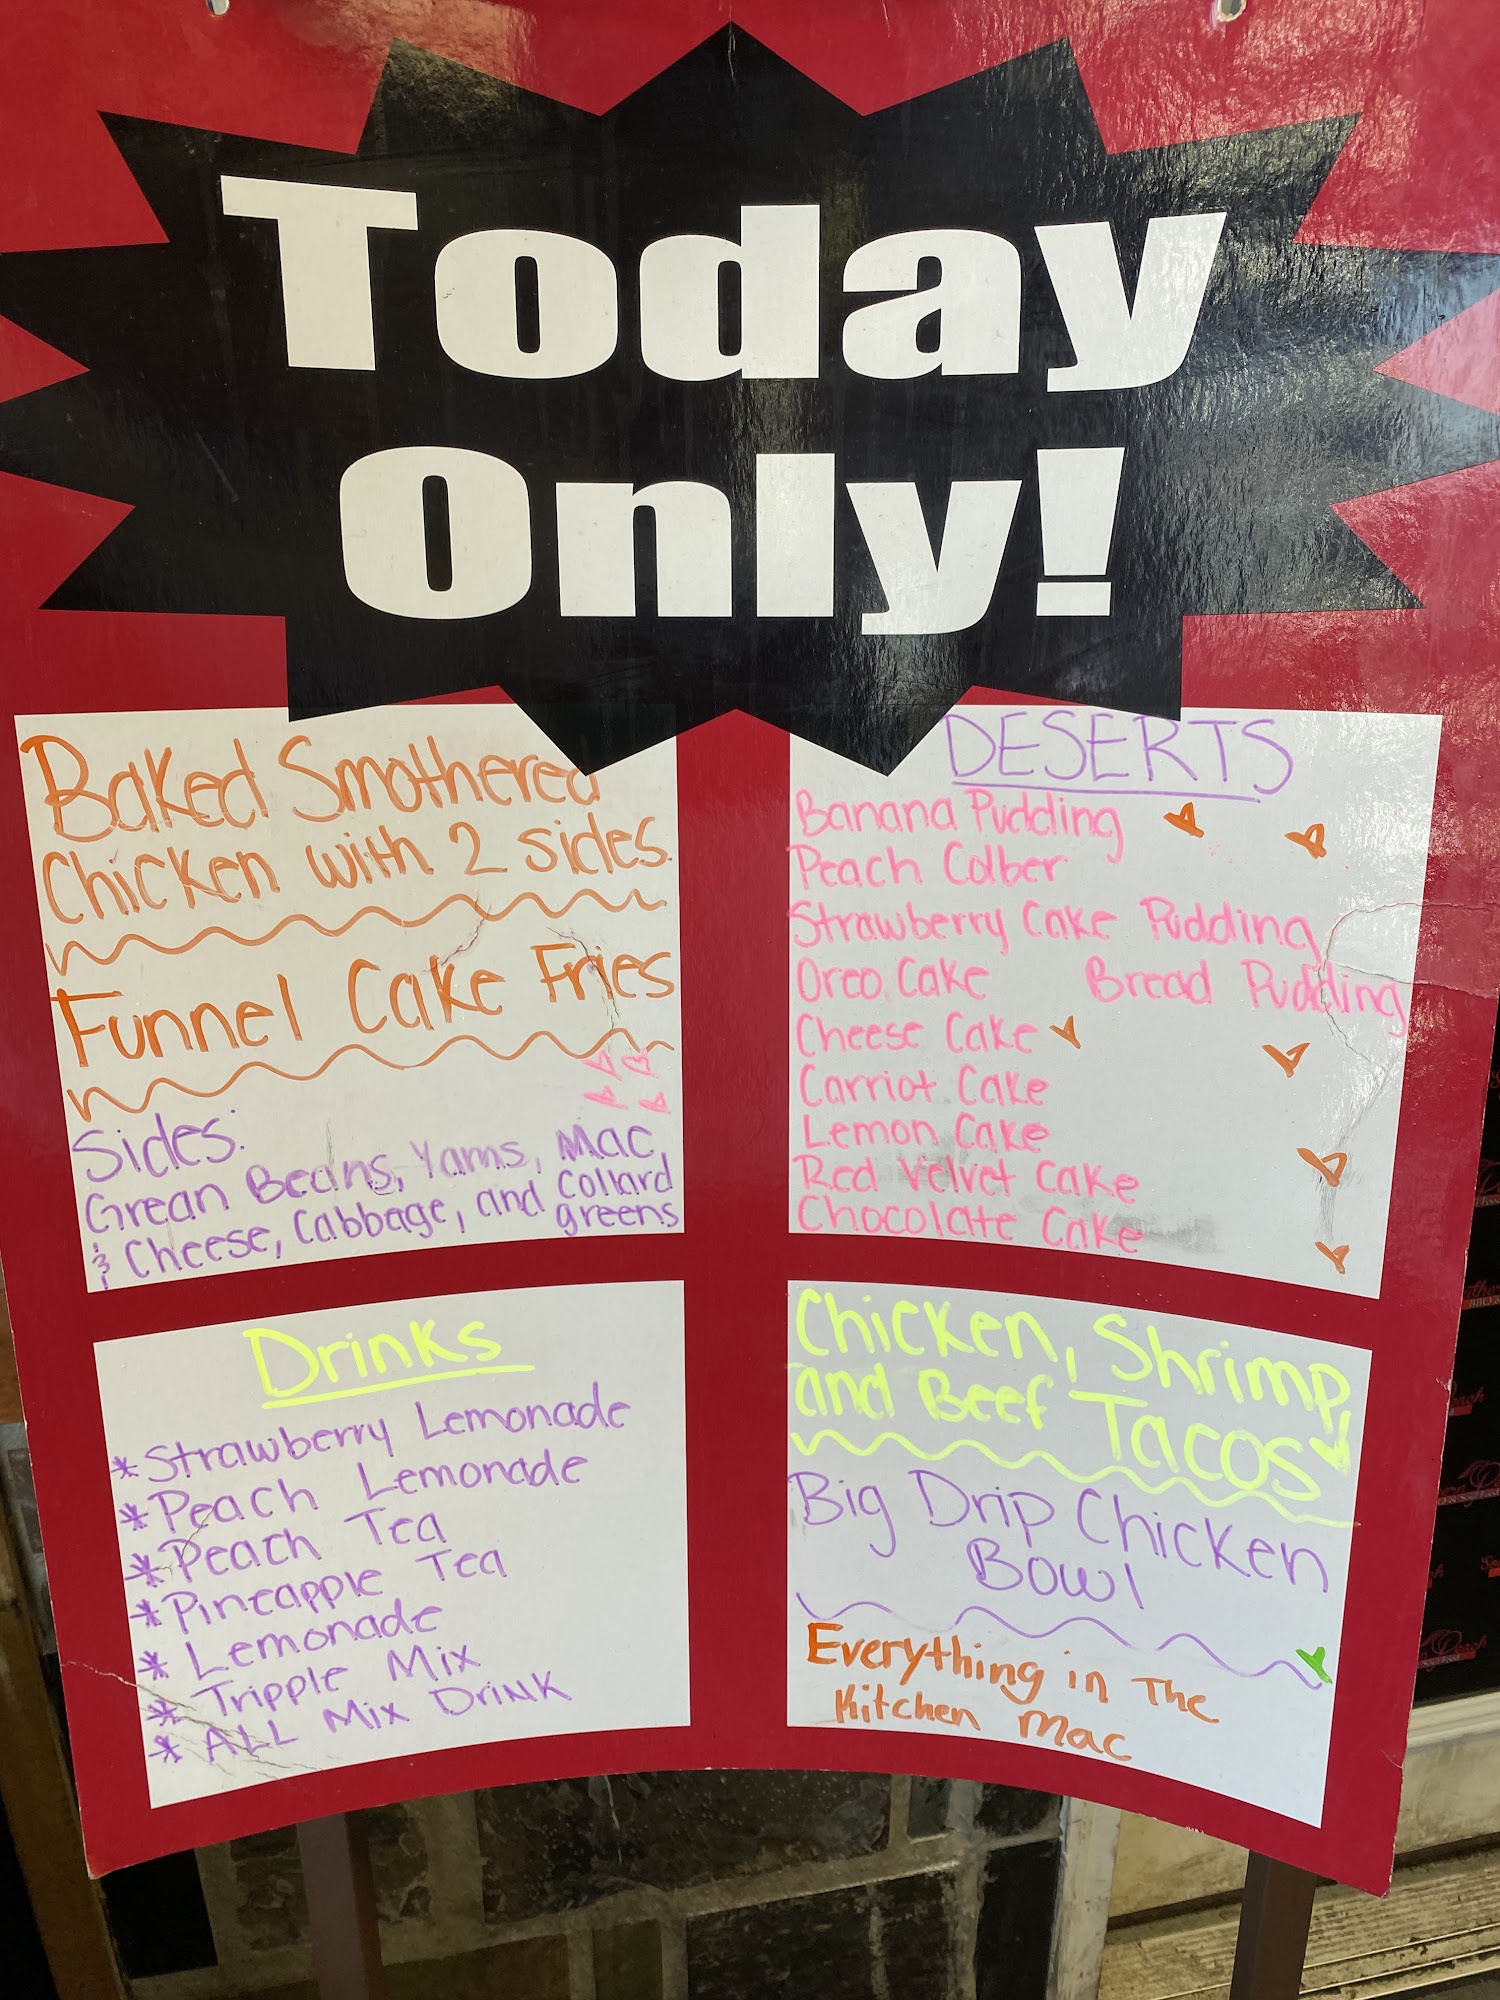 Today
Only!
Baked Smothered
Chicken with 2 sides.
Funnel Cake Fries
Sides:
Grean Beans, Yams, Mac,
& Cheese, Cabbage, and Collard
greens
DESERTS
Banana Pudding
Peach Colber
Strawberry Cake Pudding
Oreo Cake Bread Pudding
Cheese Cake
Carriot Cake
Lemon Cake
Red Velvet Cake
Chocolate Cake
Drinks
* Strawberry Lemonade
* Peach Lemonade
* Peach Tea
* Pineapple Tea
* Lemonade
* Tripple Mix
* ALL Mix Drink
Chicken, Shrimp,
and Beef Tacos
Big Drip Chicken
Bowl
Everything in The
Kitchen Mac